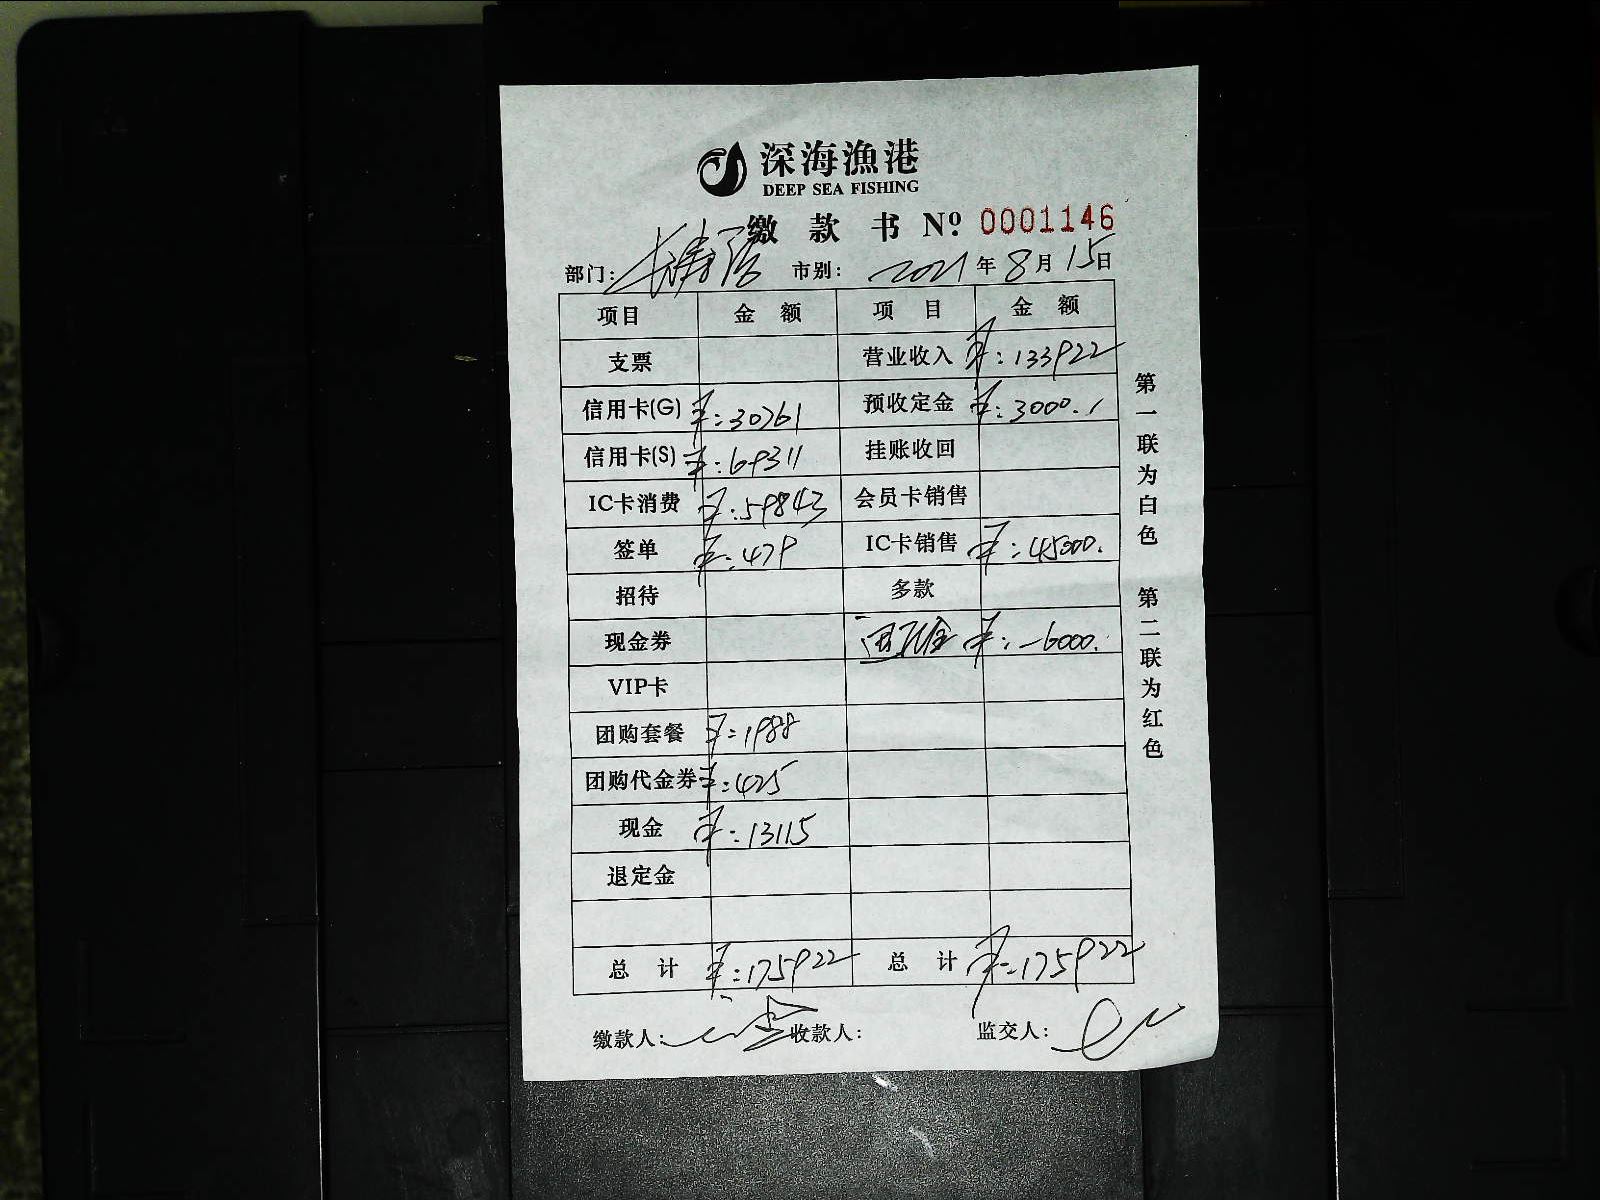 深海漁港
DEEP SEA FISHING
缴款书 Nº 0001146
部门：长寿路 市别： 2021年8月15日
项目 金额 项目 金额
支票 营业收入 ¥：133922
信用卡(G) ¥：30761 预收定金 ¥：3000.
信用卡(S) ¥：69311 挂账收回
IC卡消费 ¥：59843 会员卡销售
签单 ¥：479 IC卡销售 ¥：45000.
招待 多款
现金券 ¥：-6000.
VIP卡
团购套餐 ¥：1988
团购代金券 ¥：425
现金 ¥：13115
退定金
总计 ¥：175922 总计 ¥：175922
缴款人： 收款人： 监交人：
第一联为白色 第二联为红色